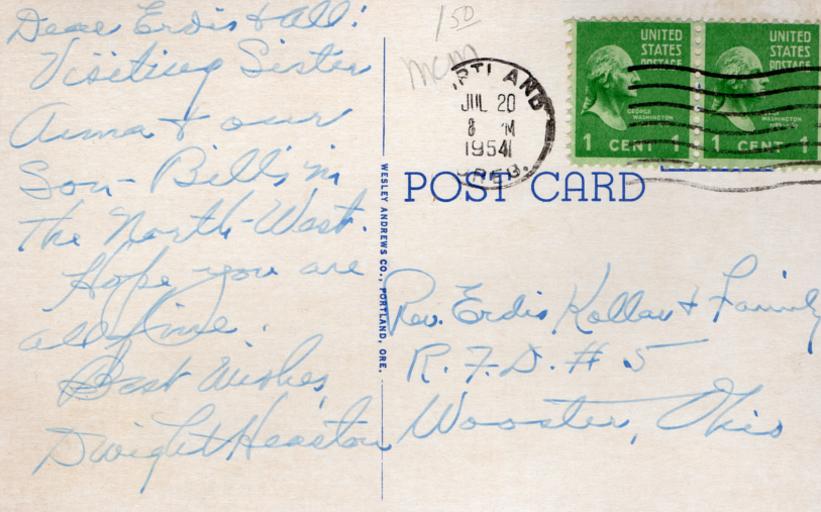 Dear Erdis & All:
Visiting Sister
Anna & our
Son - Bill's in
the North-West.
Hope you are
all fine.
Best Wishes,
Dwight Heaston
WESLEY ANDREWS CO., PORTLAND, ORE.
1 50
mcm
JUL 20
8 M
1954
UNITED
STATES
POSTAGE
GEORGE
WASHINGTON
1 CENT 1
UNITED
STATES
POSTAGE
WASHINGTON
1 CENT 1
POST CARD
Rev. Erdis & Family
R.F.D. # 5
Wooster, Ohio